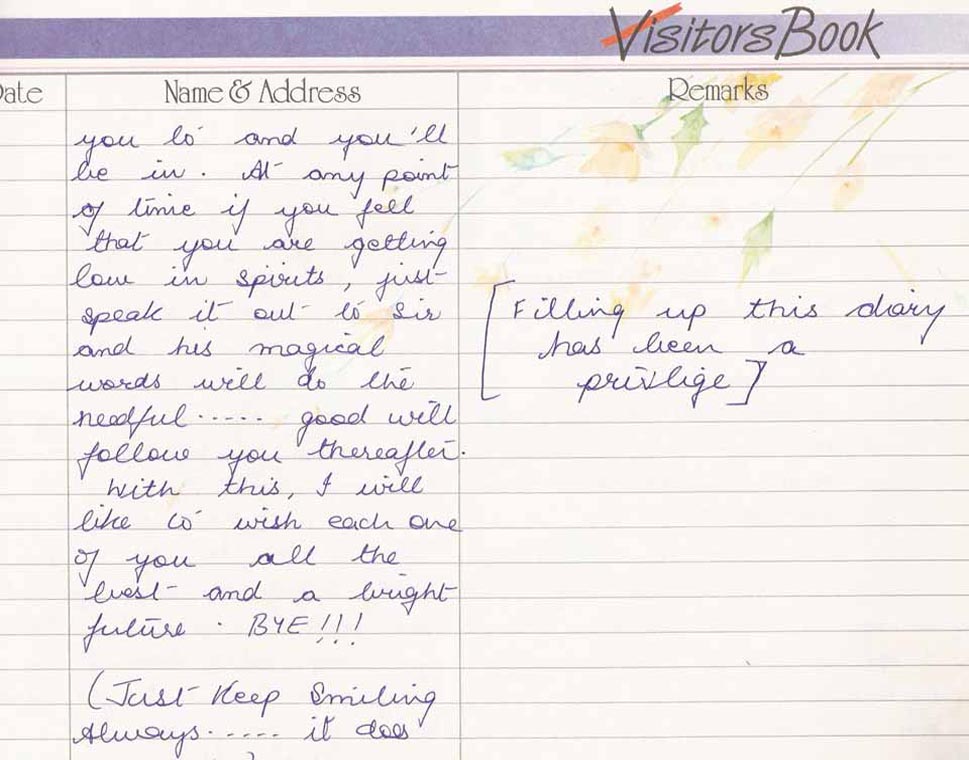 Visitors Book
Date
Name & Address
Remarks
you to and you'll
be in. At any point
of time if you fell
that you are getting
low in spirits, just
speak it out to Sir
and his magical
words will do the
needful ..... good will
follow you thereafter.
With this, I will
like to wish each one
of you all the
best and a bright
future. BYE!!!
(Just Keep Smiling
Always ..... it does
[Filling up this diary
has been a
privilige]